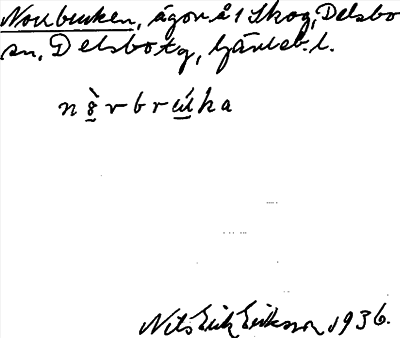 Norrbruken, ägor å 1 Skog, Delsbo
sn, Delsbo tg, Gävleb. l.
nò̱rvbrú̱ka
Nils Erik Erikson 1936.